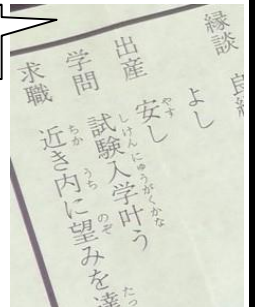 縁談
よし
出産
安し
学問
試験入学叶う
求職
近き内に望みを達